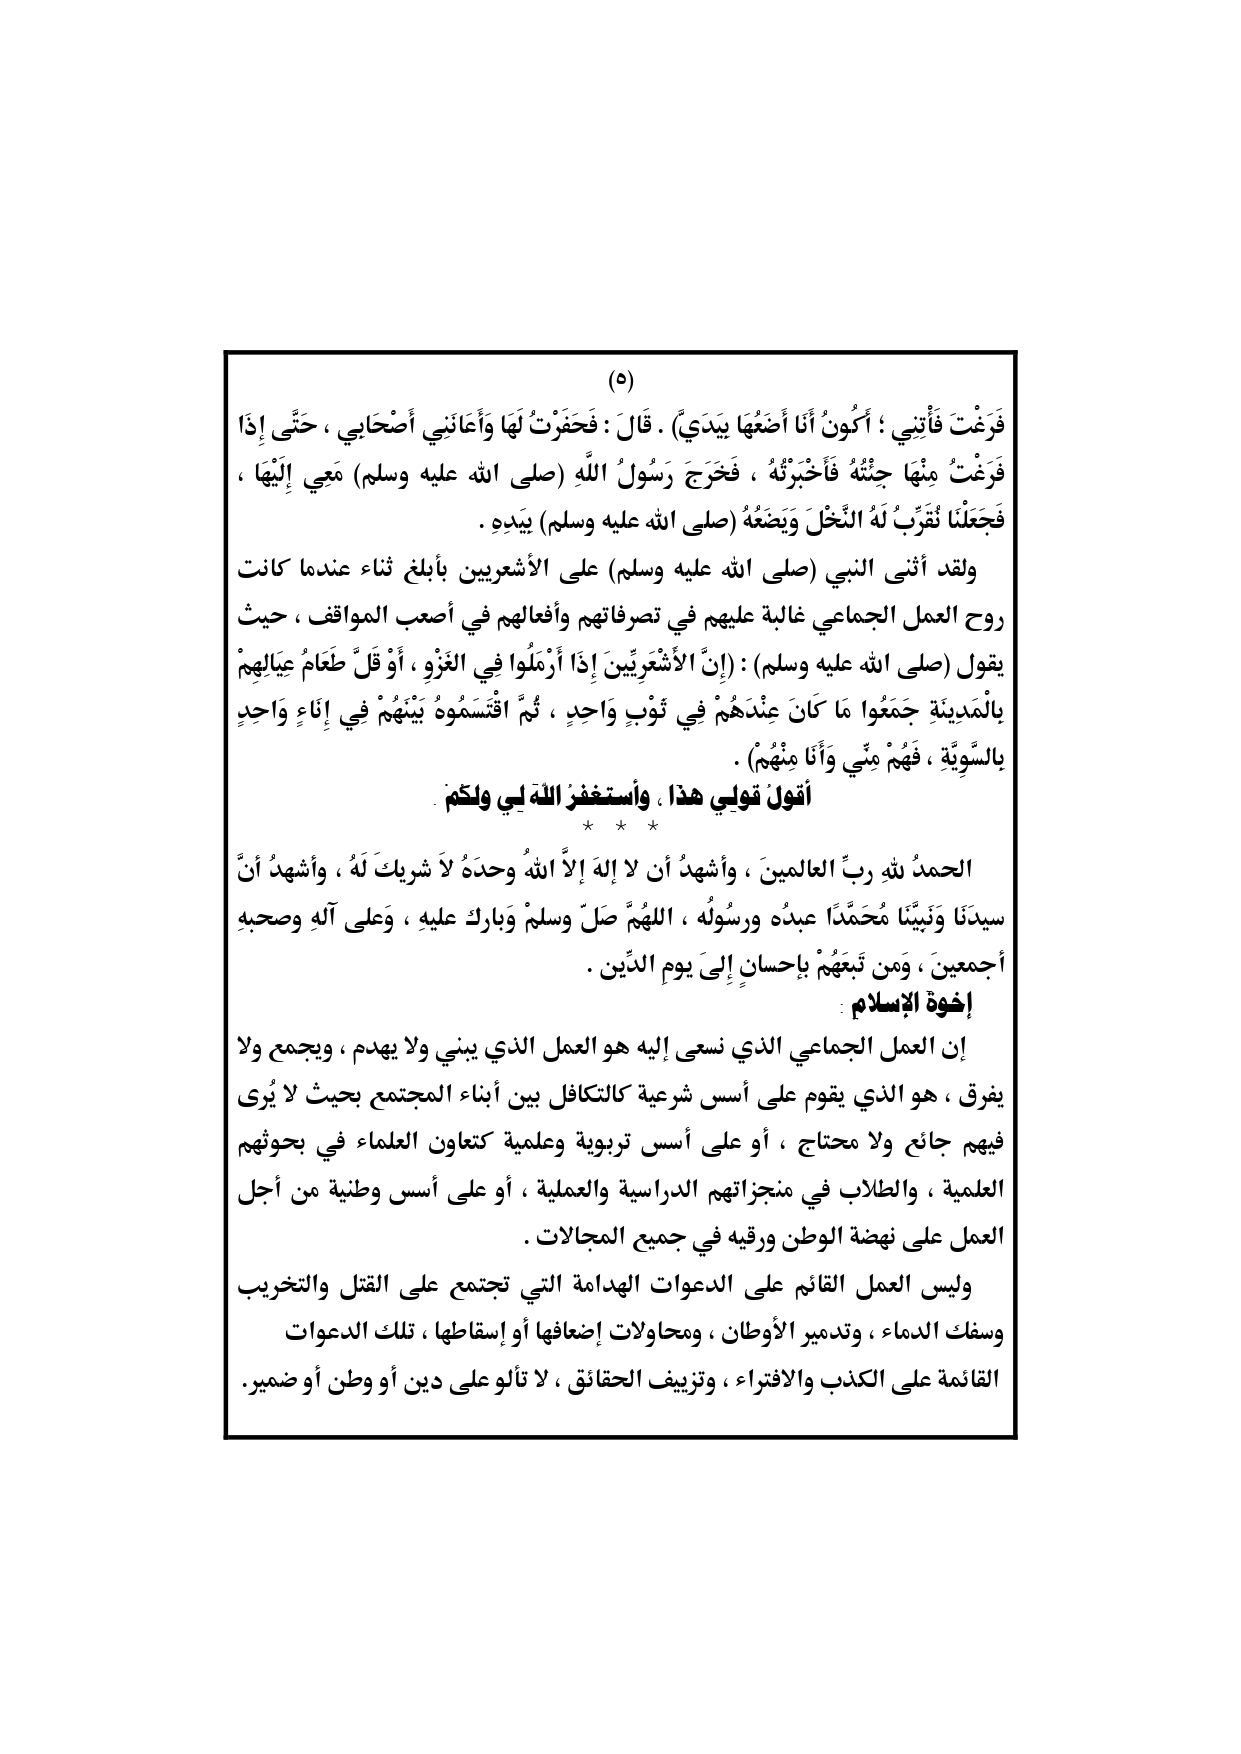 (٥)
فَرَغْتَ فَأْتِنِي ؛ أَكُونُ أَنَا أَضَعُهَا بِيَدَيَّ) . قَالَ : فَحَفَرْتُ لَهَا وَأَعَانَنِي أَصْحَابِي ، حَتَّى إِذَا
فَرَغْتُ مِنْهَا جِئْتُهُ فَأَخْبَرْتُهُ ، فَخَرَجَ رَسُولُ اللَّهِ (صلى الله عليه وسلم) مَعِي إِلَيْهَا ،
فَجَعَلْنَا نُقَرِّبُ لَهُ النَّخْلَ وَيَضَعُهُ (صلى الله عليه وسلم) بِيَدِهِ .
ولقد أثنى النبي (صلى الله عليه وسلم) على الأشعريين بأبلغ ثناء عندما كانت
روح العمل الجماعي غالبة عليهم في تصرفاتهم وأفعالهم في أصعب المواقف ، حيث
يقول (صلى الله عليه وسلم) : (إِنَّ الأَشْعَرِيِّينَ إِذَا أَرْمَلُوا فِي الغَزْوِ ، أَوْ قَلَّ طَعَامُ عِيَالِهِمْ
بِالْمَدِينَةِ جَمَعُوا مَا كَانَ عِنْدَهُمْ فِي ثَوْبٍ وَاحِدٍ ، ثُمَّ اقْتَسَمُوهُ بَيْنَهُمْ فِي إِنَاءٍ وَاحِدٍ
بِالسَّوِيَّةِ ، فَهُمْ مِنِّي وَأَنَا مِنْهُمْ) .
أقولُ قولِي هذا ، وأستغفرُ اللهَ لِي ولكُم .
* * *
الحمدُ للهِ ربِّ العالمينَ ، وأشهدُ أن لا إلهَ إلاَّ اللهُ وحدَهُ لاَ شريكَ لَهُ ، وأشهدُ أنَّ
سيدَنَا وَنَبِيَّنَا مُحَمَّدًا عبدُه ورسُولُه ، اللهُمَّ صَلّ وسلمْ وَبارك عليهِ ، وَعلى آلهِ وصحبهِ
أجمعينَ ، وَمن تَبعَهُمْ بإحسانٍ إِلىَ يومِ الدِّين .
إخوة الإسلام :
إن العمل الجماعي الذي نسعى إليه هو العمل الذي يبني ولا يهدم ، ويجمع ولا
يفرق ، هو الذي يقوم على أسس شرعية كالتكافل بين أبناء المجتمع بحيث لا يُرى
فيهم جائع ولا محتاج ، أو على أسس تربوية وعلمية كتعاون العلماء في بحوثهم
العلمية ، والطلاب في منجزاتهم الدراسية والعملية ، أو على أسس وطنية من أجل
العمل على نهضة الوطن ورقيه في جميع المجالات .
وليس العمل القائم على الدعوات الهدامة التي تجتمع على القتل والتخريب
وسفك الدماء ، وتدمير الأوطان ، ومحاولات إضعافها أو إسقاطها ، تلك الدعوات
القائمة على الكذب والافتراء ، وتزييف الحقائق ، لا تألو على دين أو وطن أو ضمير.